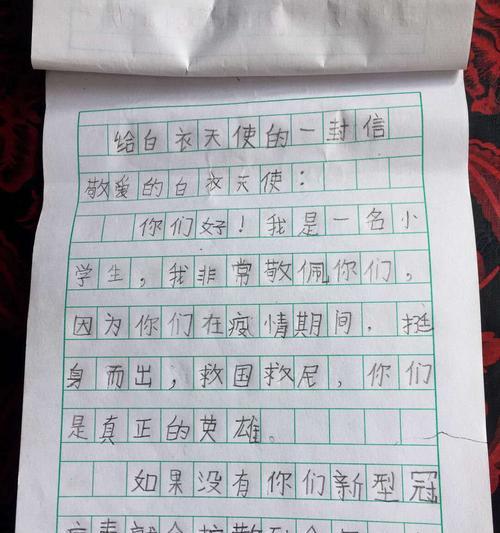 给白衣天使的一封信
敬爱的白衣天使：
你们好！我是一名小
学生，我非常敬佩你们，
因为你们在疫情期间．挺
身而出，救国救民，你们
是真正的英雄。
如果没有你们新型冠